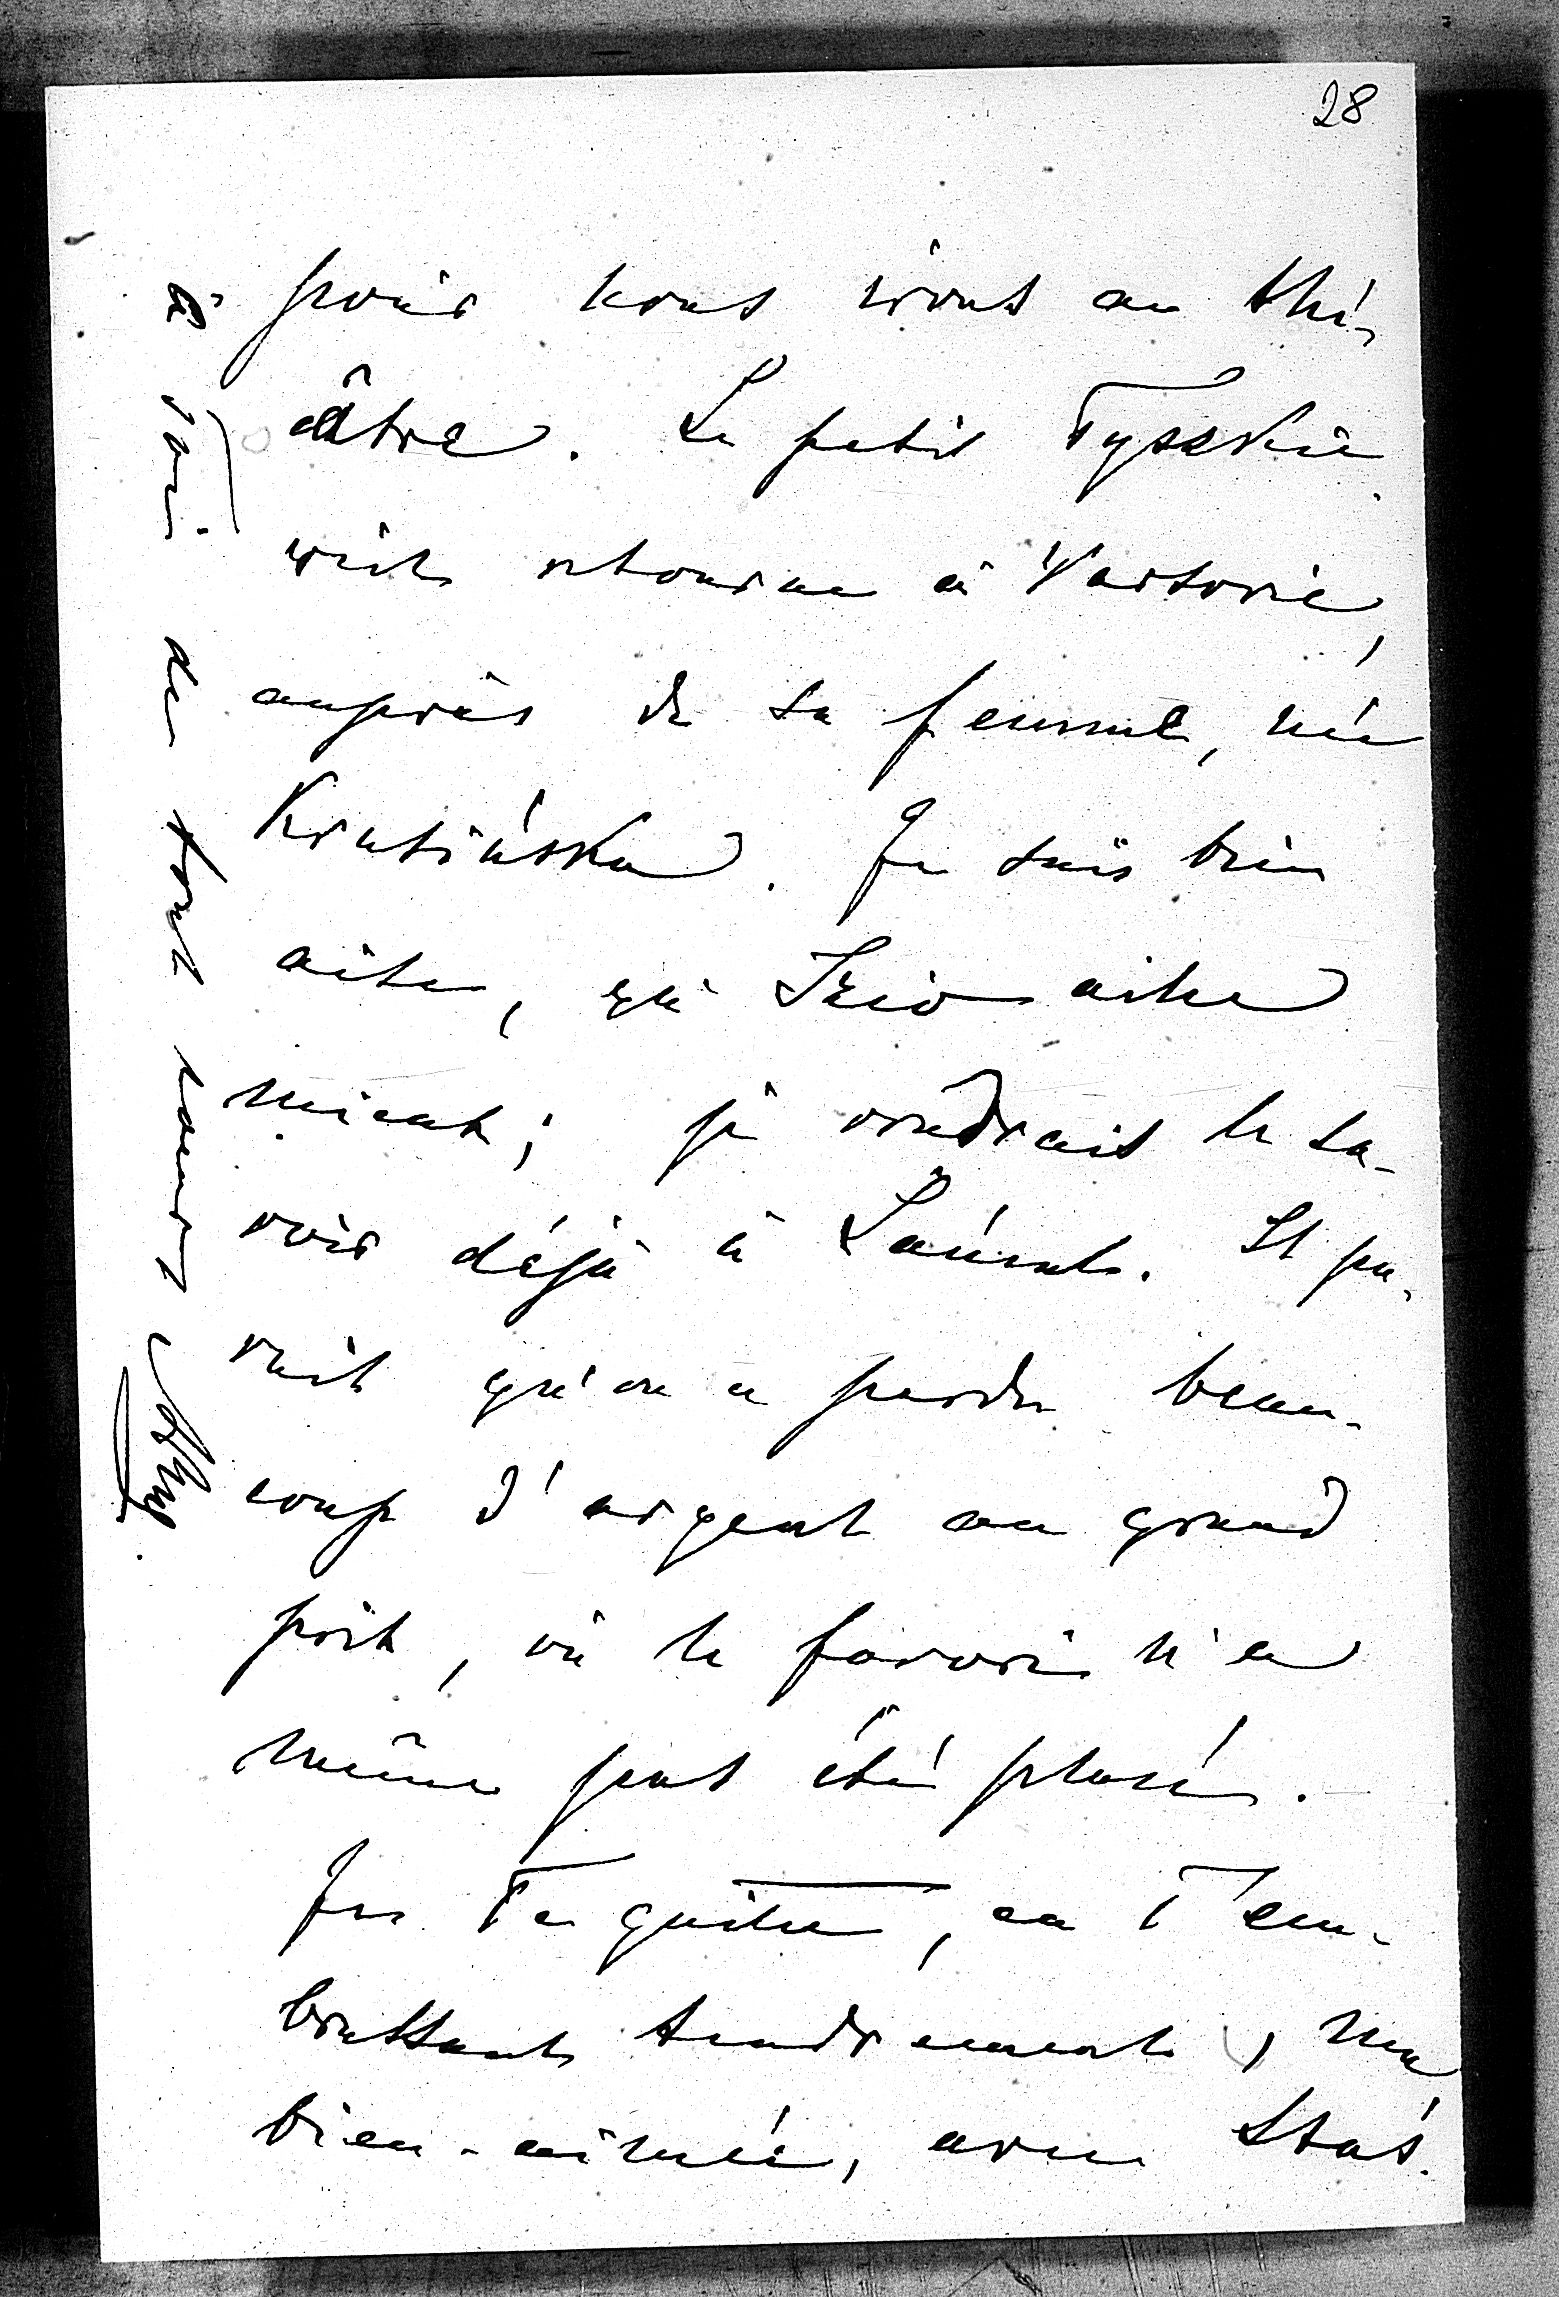 28
soir nous irons au thé-
âtre. Le petit Tyszkie-
wicz retourne à Varsovie,
auprès de sa femme, née
Krasińska. Je suis bien
aise, que Szio aille
mieux; je voudrais le sa-
voir déjà à Łańcut. Il pa-
rait qu'on a perdu beau-
coup d'argent au grand
prix, où le favori n'a
même pas été placé.
Je Te quitte, en T'em-
brassant tendrement, ma
bien-aimée, avec Staś.
à Toi de tout coeur